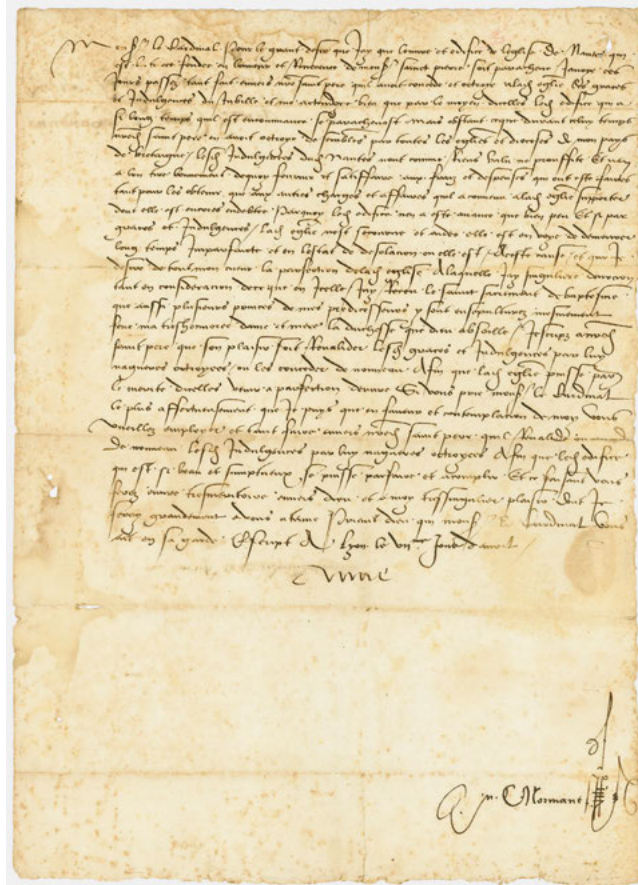 Mons. le Cardinal. Pour le grant desir que Jay que leuvre et edifice de leglise de Nantes qui
est fondee en lonneur et Reverence de mons. sainct pierre soit paracheve Javoye ces
Jours passez tant fait envers nre saint pere quil avoit concede et octroye a lad. eglise les graces
et Indulgences du Jubille et me actendoye bien que par le moyen dicelles led. edifice qui a
si long temps quil est encommance se parachevast Mais obstant ce que durant celuy temps
nred. saint pere en avoit octroye de semblables par toutes les eglises et dioceses de mon pays
de bretaigne lesd. Indulgences dud. Nantes nont comme Riens valu ne prouffite Et ny
a lon tire bonnement dequoy fournir et satiffaire aux fraiz et despenses qui ont este faictes
tant pour les obtenir que aux autres charges et affaires que a convenu a lad. eglise supporter
dont elle est encores endebtee Parquoy led. edifice nen a este avance que bien peu Et si par
graces et Indulgences lad. eglise nest secourue et aidee elle est en voye de demourer
long temps Imparfaicte et en lestat de desolacion ou elle est A ceste cause et que Je
desire de tout mon cueur la perfection de lad. eglise A laquelle Jay singuliere devocion
tant en consideracion de ce que en Icelle Jay Receu le saint sacrement de baptesme
que aussi plusieurs princes de mes predecesseurs y sont ensepulturez mesmement
feue ma treshonnoree dame et mere la duchesse que dieu absoille Jescripz a nred.
saint pere que son plaisir soit Revalider lesd. graces et Indulgences par luy
nagueres octroyees ou les conceder de nouveau Afin que lad. eglise puisse par
le merite dicelles venir a parfection deuvre Si vous prie mons. le Cardinal
le plus affectueusement que Je puys que en faveur et contemplacion de moy vous
vueillez employer et tant faire envers nred. saint pere quil Revalide
de nouveau lesd. Indulgences par luy nagueres octroyees Afin que led. edifice
qui est si beau et sumptueux se puisse parfaire et acomplir Et ce faisant vous
ferez euvre tresmeritoire envers dieu et a moy tressingulier plaisir dont Je
seray grandement a vous atenue Priant dieu qui mons. le Cardinal vous
ait en sa garde Escript A Lyon le VIIme Jour daoust
Anne
Normant